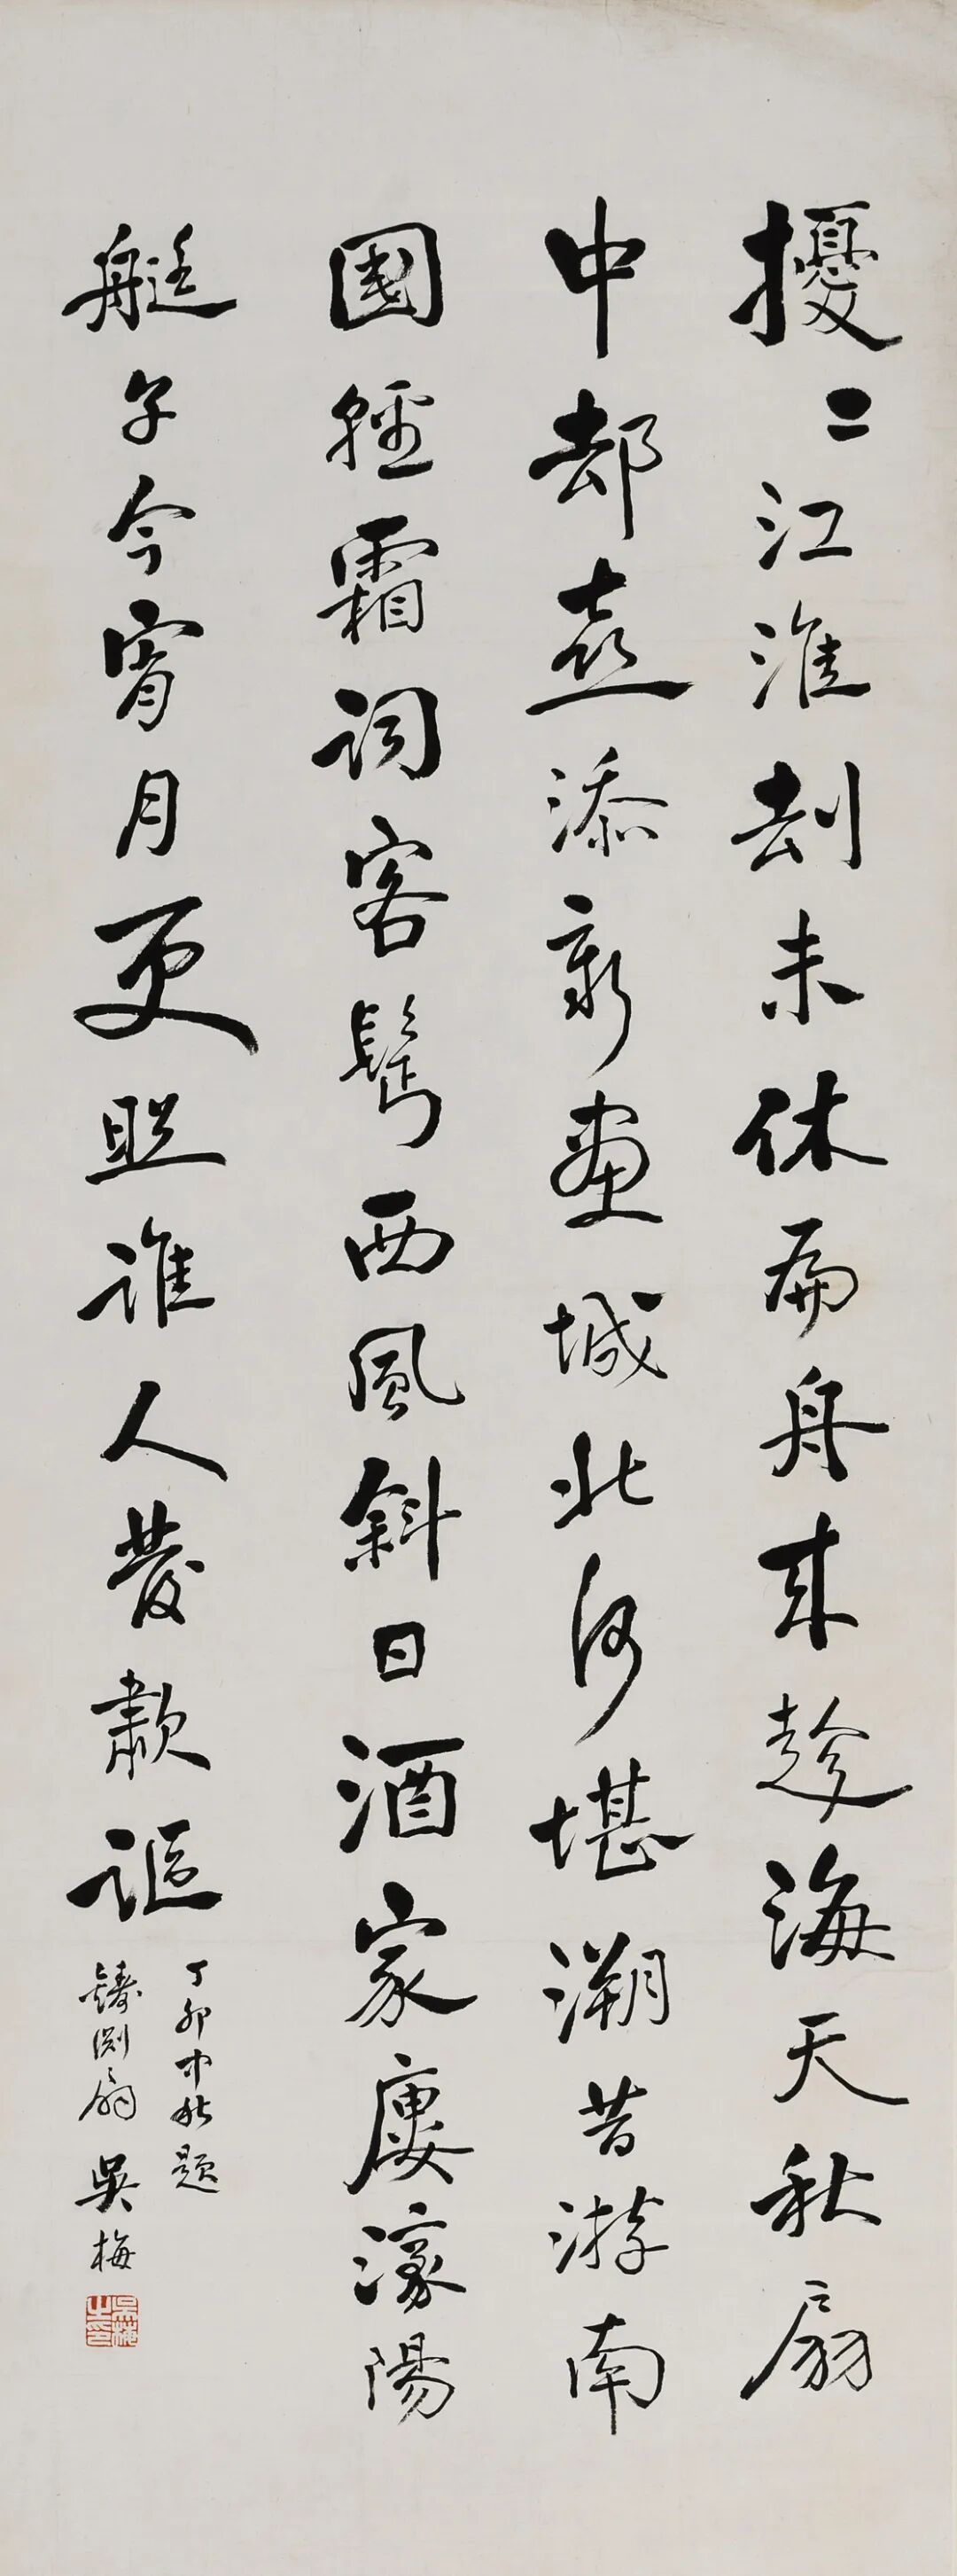 擾〻江淮刦未休扁舟來趁海天秋扇
中却喜添新畫城北何堪溯昔游南
國輕霜詞客鬢西風斜日酒家廔濠陽
艇子今宵月更照誰人發歗謳
丁卯中秋題
鑄淵扇 吳梅
吳梅之印